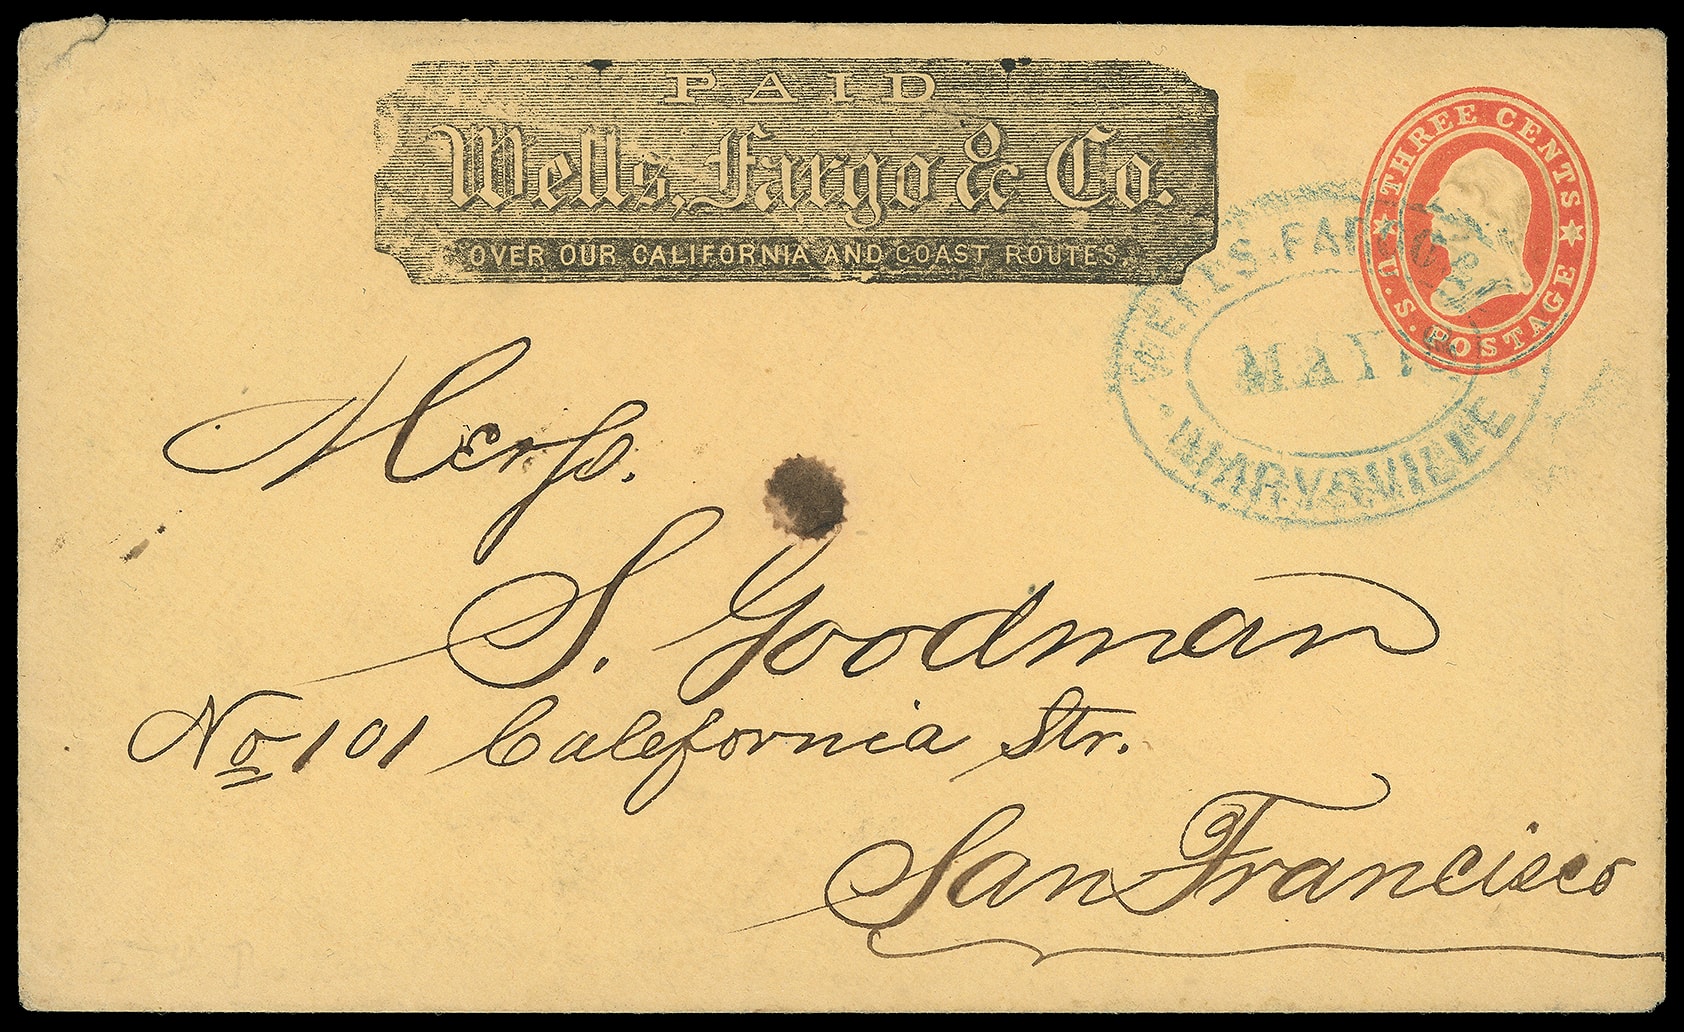 PAID
Wells, Fargo & Co.
OVER OUR CALIFORNIA AND COAST ROUTES.
THREE CENTS
U.S. POSTAGE
WELLS, FARGO & Co
MAY
MARYSVILLE
Messs.
S. Goodman
No 101 California Str.
San Francisco